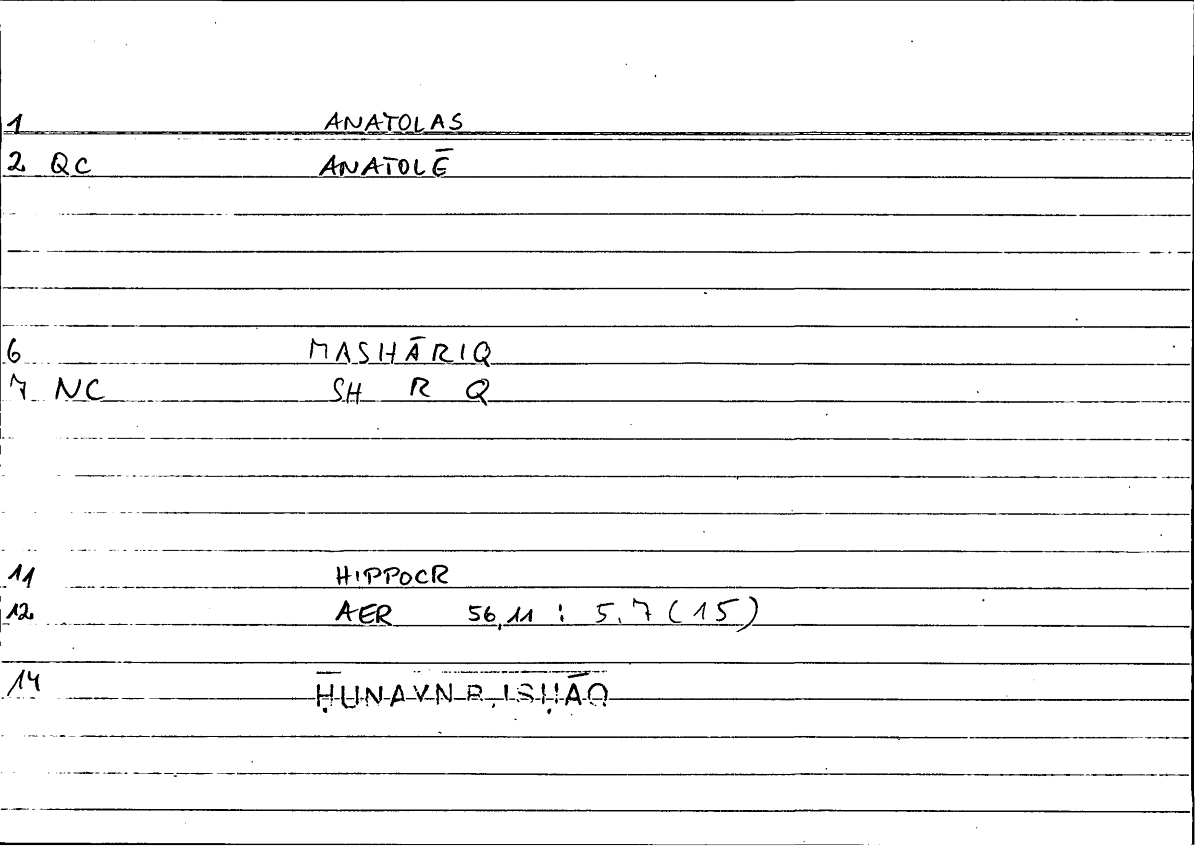 1 ANATOLAS
2 QC ANATOLĒ
6 MASHĀRIQ
7 NC SH R Q
11 HIPPOCR
12 AER 56,11 : 5.7 (15)
14 ḤUNAYN B. ISḤĀQ